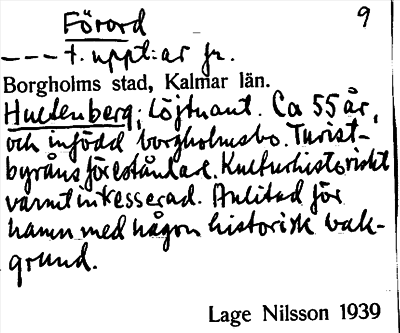 Förord 9
--- t. uppt:ar fr.
Borgholms stad, Kalmar län.
Hultenberg, Löjtnant. Ca 55 år,
och infödd borgholmsbo. Turist-
byråns föreståndare. Kulturhistoriskt
varmt intresserad. Anlitad för
namn med någon historisk bak-
grund.
Lage Nilsson 1939